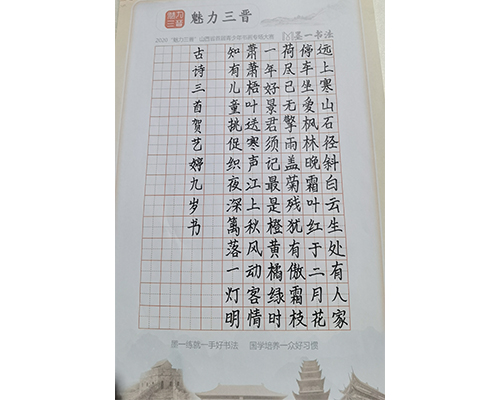 魅力三晋
魅力三晋
墨一书法
远上寒山石径斜白云生处有人家
停车坐爱枫林晚霜叶红于二月花
荷尽已无擎雨盖菊残犹有傲霜枝
一年好景君须记最是橙黄橘绿时
萧萧梧叶送寒声江上秋风动客情
知有儿童挑促织夜深篱落一灯明
古诗三首贺艺婷九岁书
墨一练就一手好书法 国学培养一众好习惯